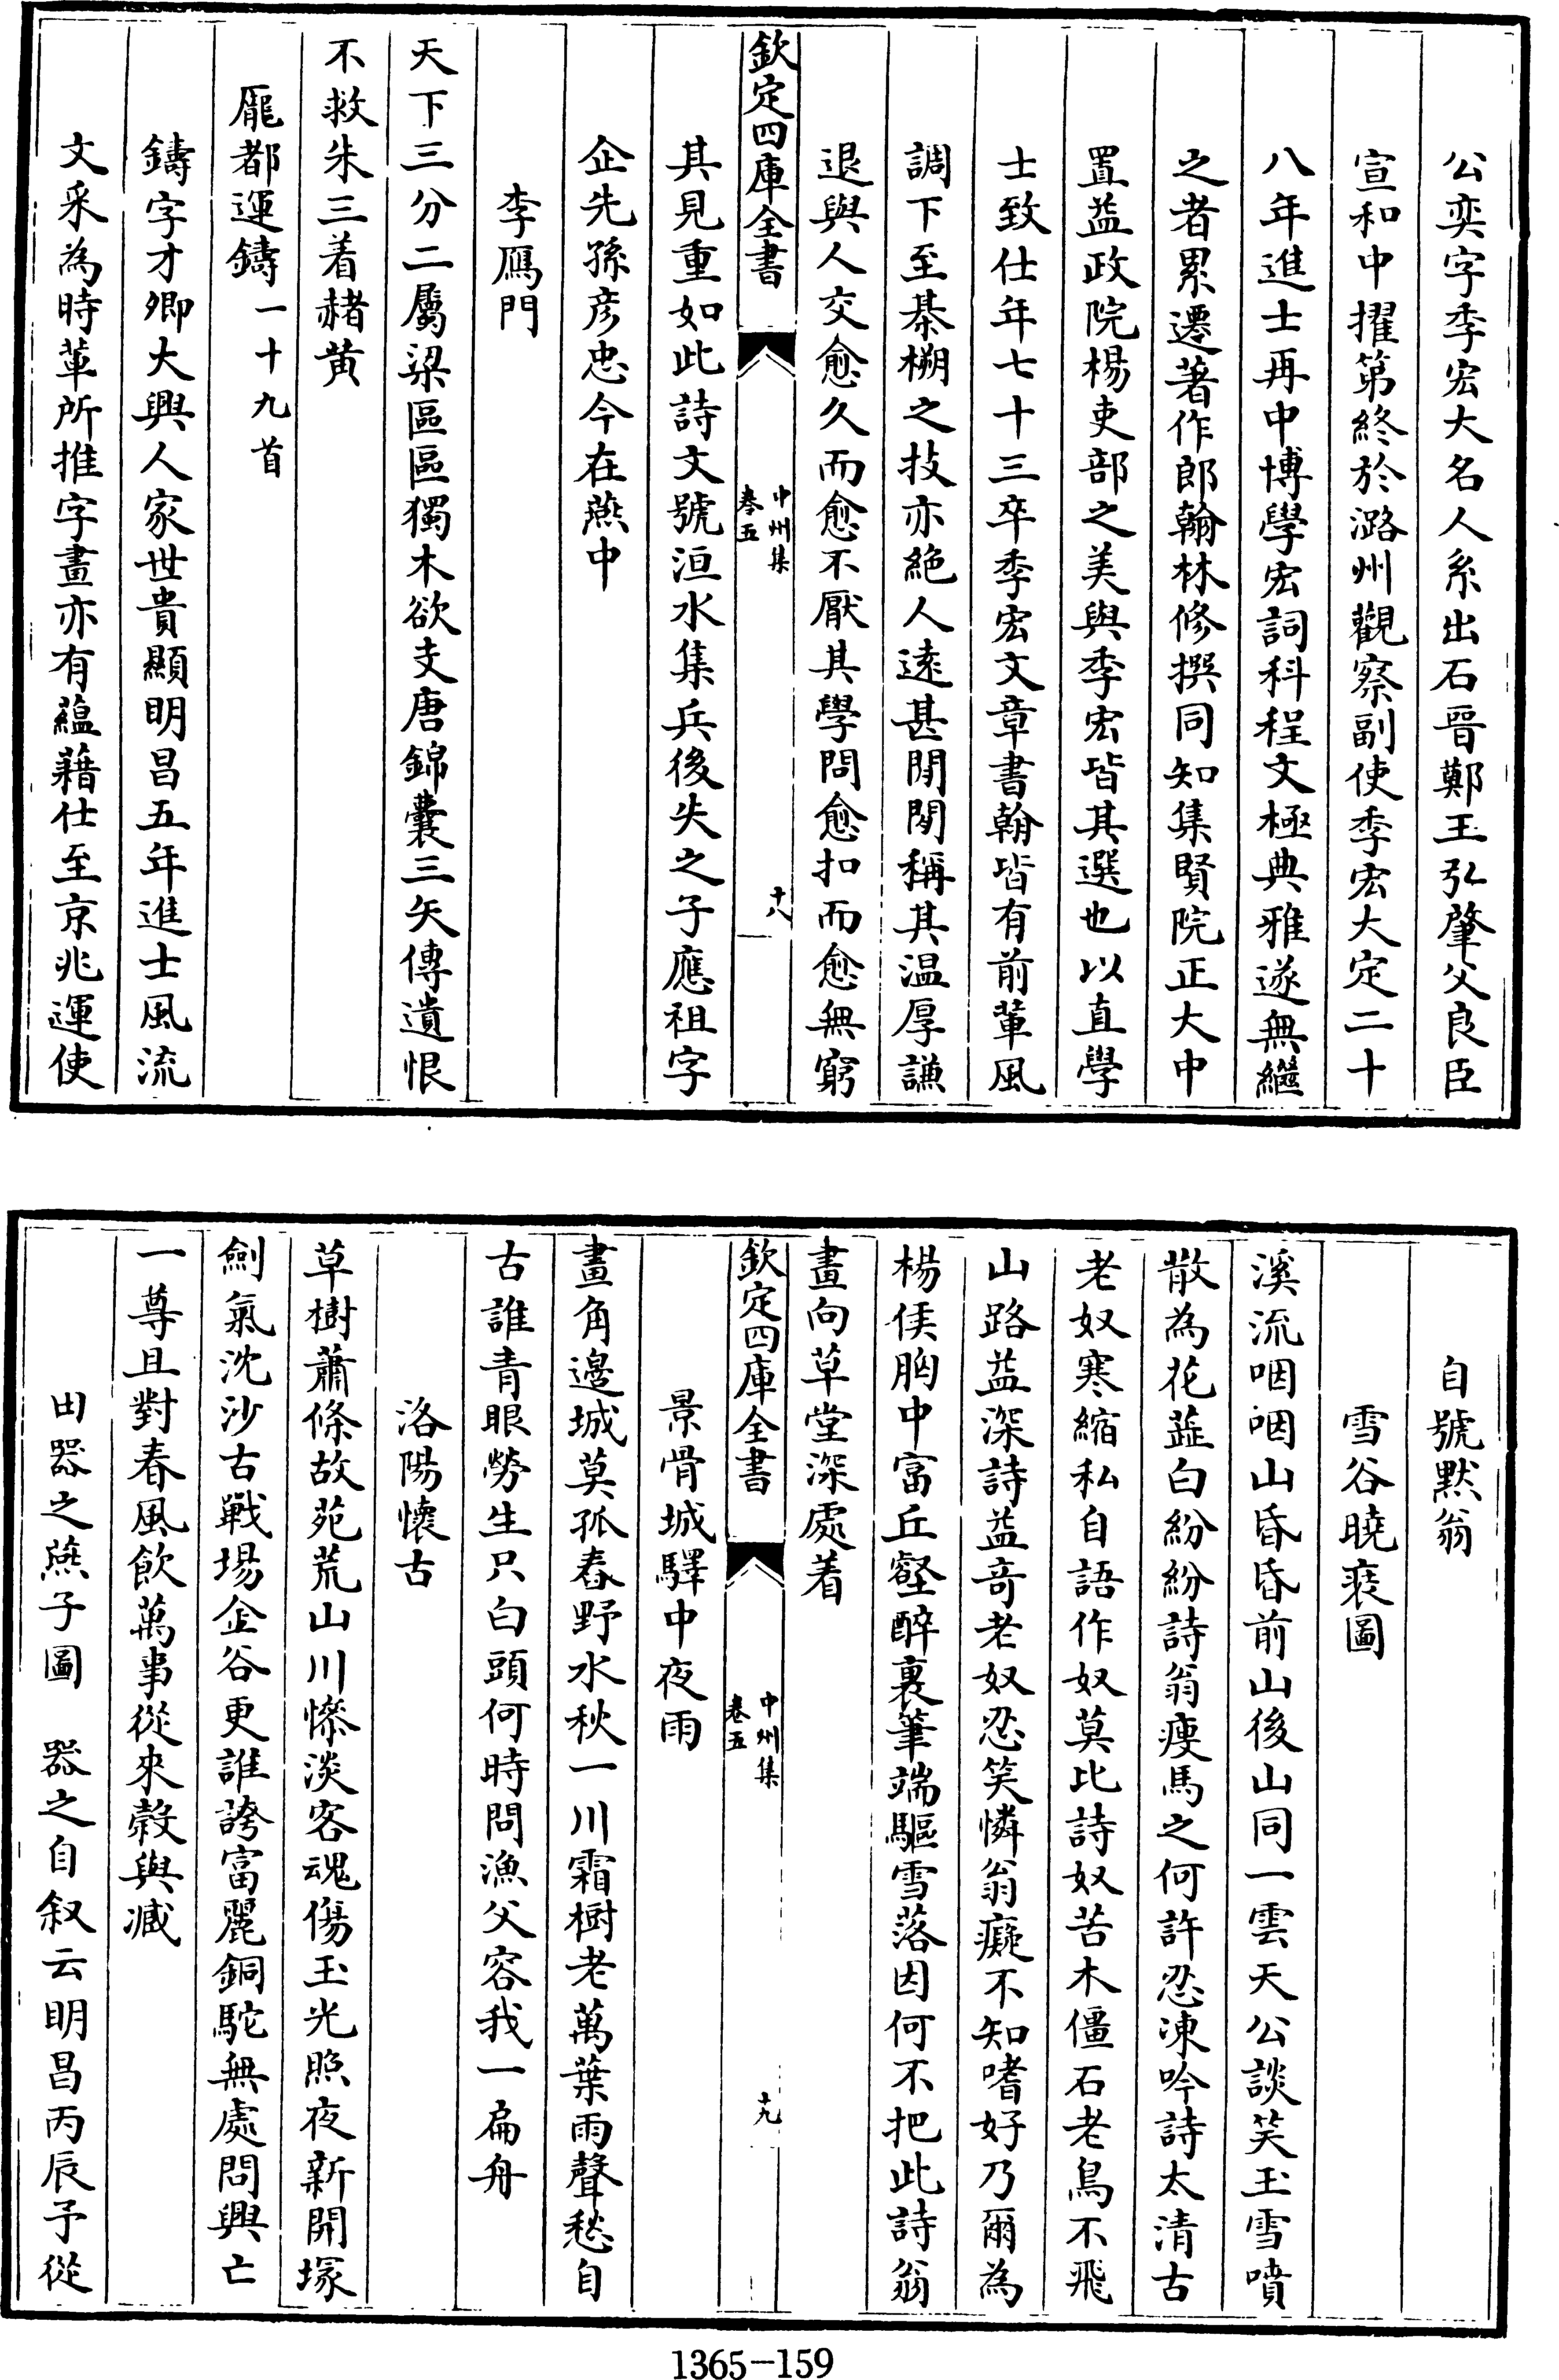 公奕字季宏大名人系出石晉鄭王弘肇父良臣
宣和中擢第終於潞州觀察副使季宏大定二十
八年進士再中博學宏詞科程文極典雅遂無繼
之者累遷著作郎翰林修撰同知集賢院正大中
置益政院楊吏部之美與季宏皆其選也以直學
士致仕年七十三卒季宏文章書翰皆有前輩風
調下至棊槊之技亦絶人遠甚閒閒稱其温厚謙
退與人交愈久而愈不厭其學問愈扣而愈無窮
欽定四庫全書
中州集
卷五
十八
其見重如此詩文號洹水集兵後失之子應祖字
企先孫彦忠今在燕中
李鴈門
天下三分二屬梁區區獨木欲支唐錦囊三矢傳遺恨
不救朱三着赭黄
龎都運鑄一十九首
鑄字才卿大興人家世貴顯明昌五年進士風流
文采為時輩所推字畫亦有藴藉仕至京兆運使
自號黙翁
雪谷曉裝圖
溪流咽咽山昏昏前山後山同一雲天公談笑玉雪噴
散為花蘂白紛紛詩翁瘦馬之何許忍凍吟詩太清古
老奴寒縮私自語作奴莫比詩奴苦木僵石老鳥不飛
山路益深詩益竒老奴忍笑憐翁癡不知嗜好乃爾為
楊侯胸中富丘壑醉裏筆端驅雪落因何不把此詩翁
畫向草堂深處着
欽定四庫全書
中州集
卷五
十九
景骨城驛中夜雨
畫角邊城莫孤舂野水秋一川霜樹老萬葉雨聲愁自
古誰青眼勞生只白頭何時問漁父容我一扁舟
洛陽懷古
草樹蕭條故苑荒山川慘淡客魂傷玉光照夜新開塚
劍氣沈沙古戰場金谷更誰誇富麗銅駝無處問興亡
一尊且對春風飲萬事從來榖與臧
田器之燕子圖 器之自叙云明昌丙辰予從
1365-159